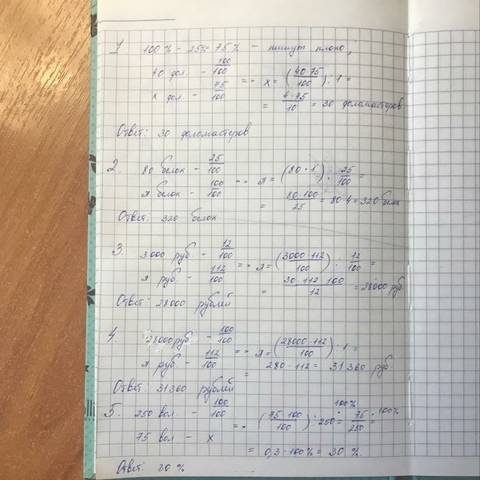 1 100% - 25% = 75% - пишут плохо;
40 дол. - 100/100
x дол. - 75/100 => x = (40·75/100) : 1 =
= 4·75/10 = 30 доломастеров
Ответ: 30 доломастеров
2. 80 белок - 25/100
x белок - 100/100 => x = (80·1) : 25/100 =
= 80·100/25 = 80·4 = 320 белок
Ответ: 320 белок
3. 3000 руб - 12/100
x руб - 112/100 => x = (3000·112/100) : 12/100 =
= 30·112·100/12 = 28000 руб
Ответ: 28000 рублей
4. 28000 руб. - 100/100
x руб - 112/100 => x = (28000·112/100) : 1 =
= 280·112 = 31360 руб
Ответ: 31360 рублей
5. 250 вол - 100/100
75 вол - x => (75·100/100) : 250 · 100% = 75/250 · 100%
= 0,3·100% = 30%
Ответ: 30%